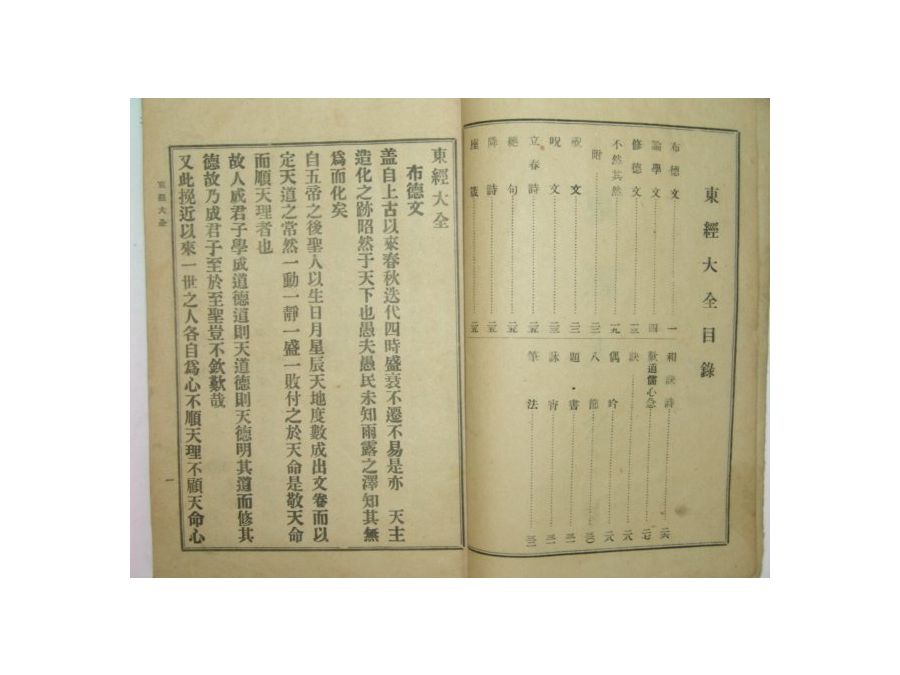 東經大全目錄
布德文 一
論學文 四
修德文 一三
不然其然 一九
附
祝文
呪文
立春詩 二五
絕句 二五
降詩 二五
座箴 二五
和訣詩 二六
歎道儒心急 二七
訣 二八
偶吟 二八
八節 三〇
題書 三一
詠宵 三一
筆法 三二
東經大全
布德文
盖自上古以來春秋迭代四時盛衰不遷不易是亦 天主
造化之跡昭然于天下也愚夫愚民未知雨露之澤知其無
爲而化矣
自五帝之後聖人以生日月星辰天地度數成出文卷而以
定天道之常然一動一靜一盛一敗付之於天命是敬天命
而順天理者也
故人成君子學成道德道則天道德則天德明其道而修其
德故乃成君子至於至聖豈不欽歎哉
又此挽近以來一世之人各自爲心不順天理不顧天命心
東經大全
一